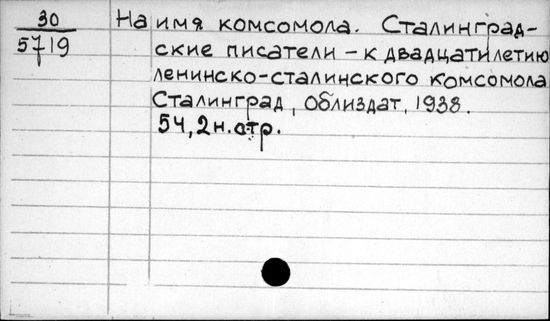 30
5719
На имя комсомола. Сталинград-
ские писатели – к двадцатилетию
ленинско-сталинского комсомола
Сталинград, Облиздат, 1938.
54, 2 н. стр.